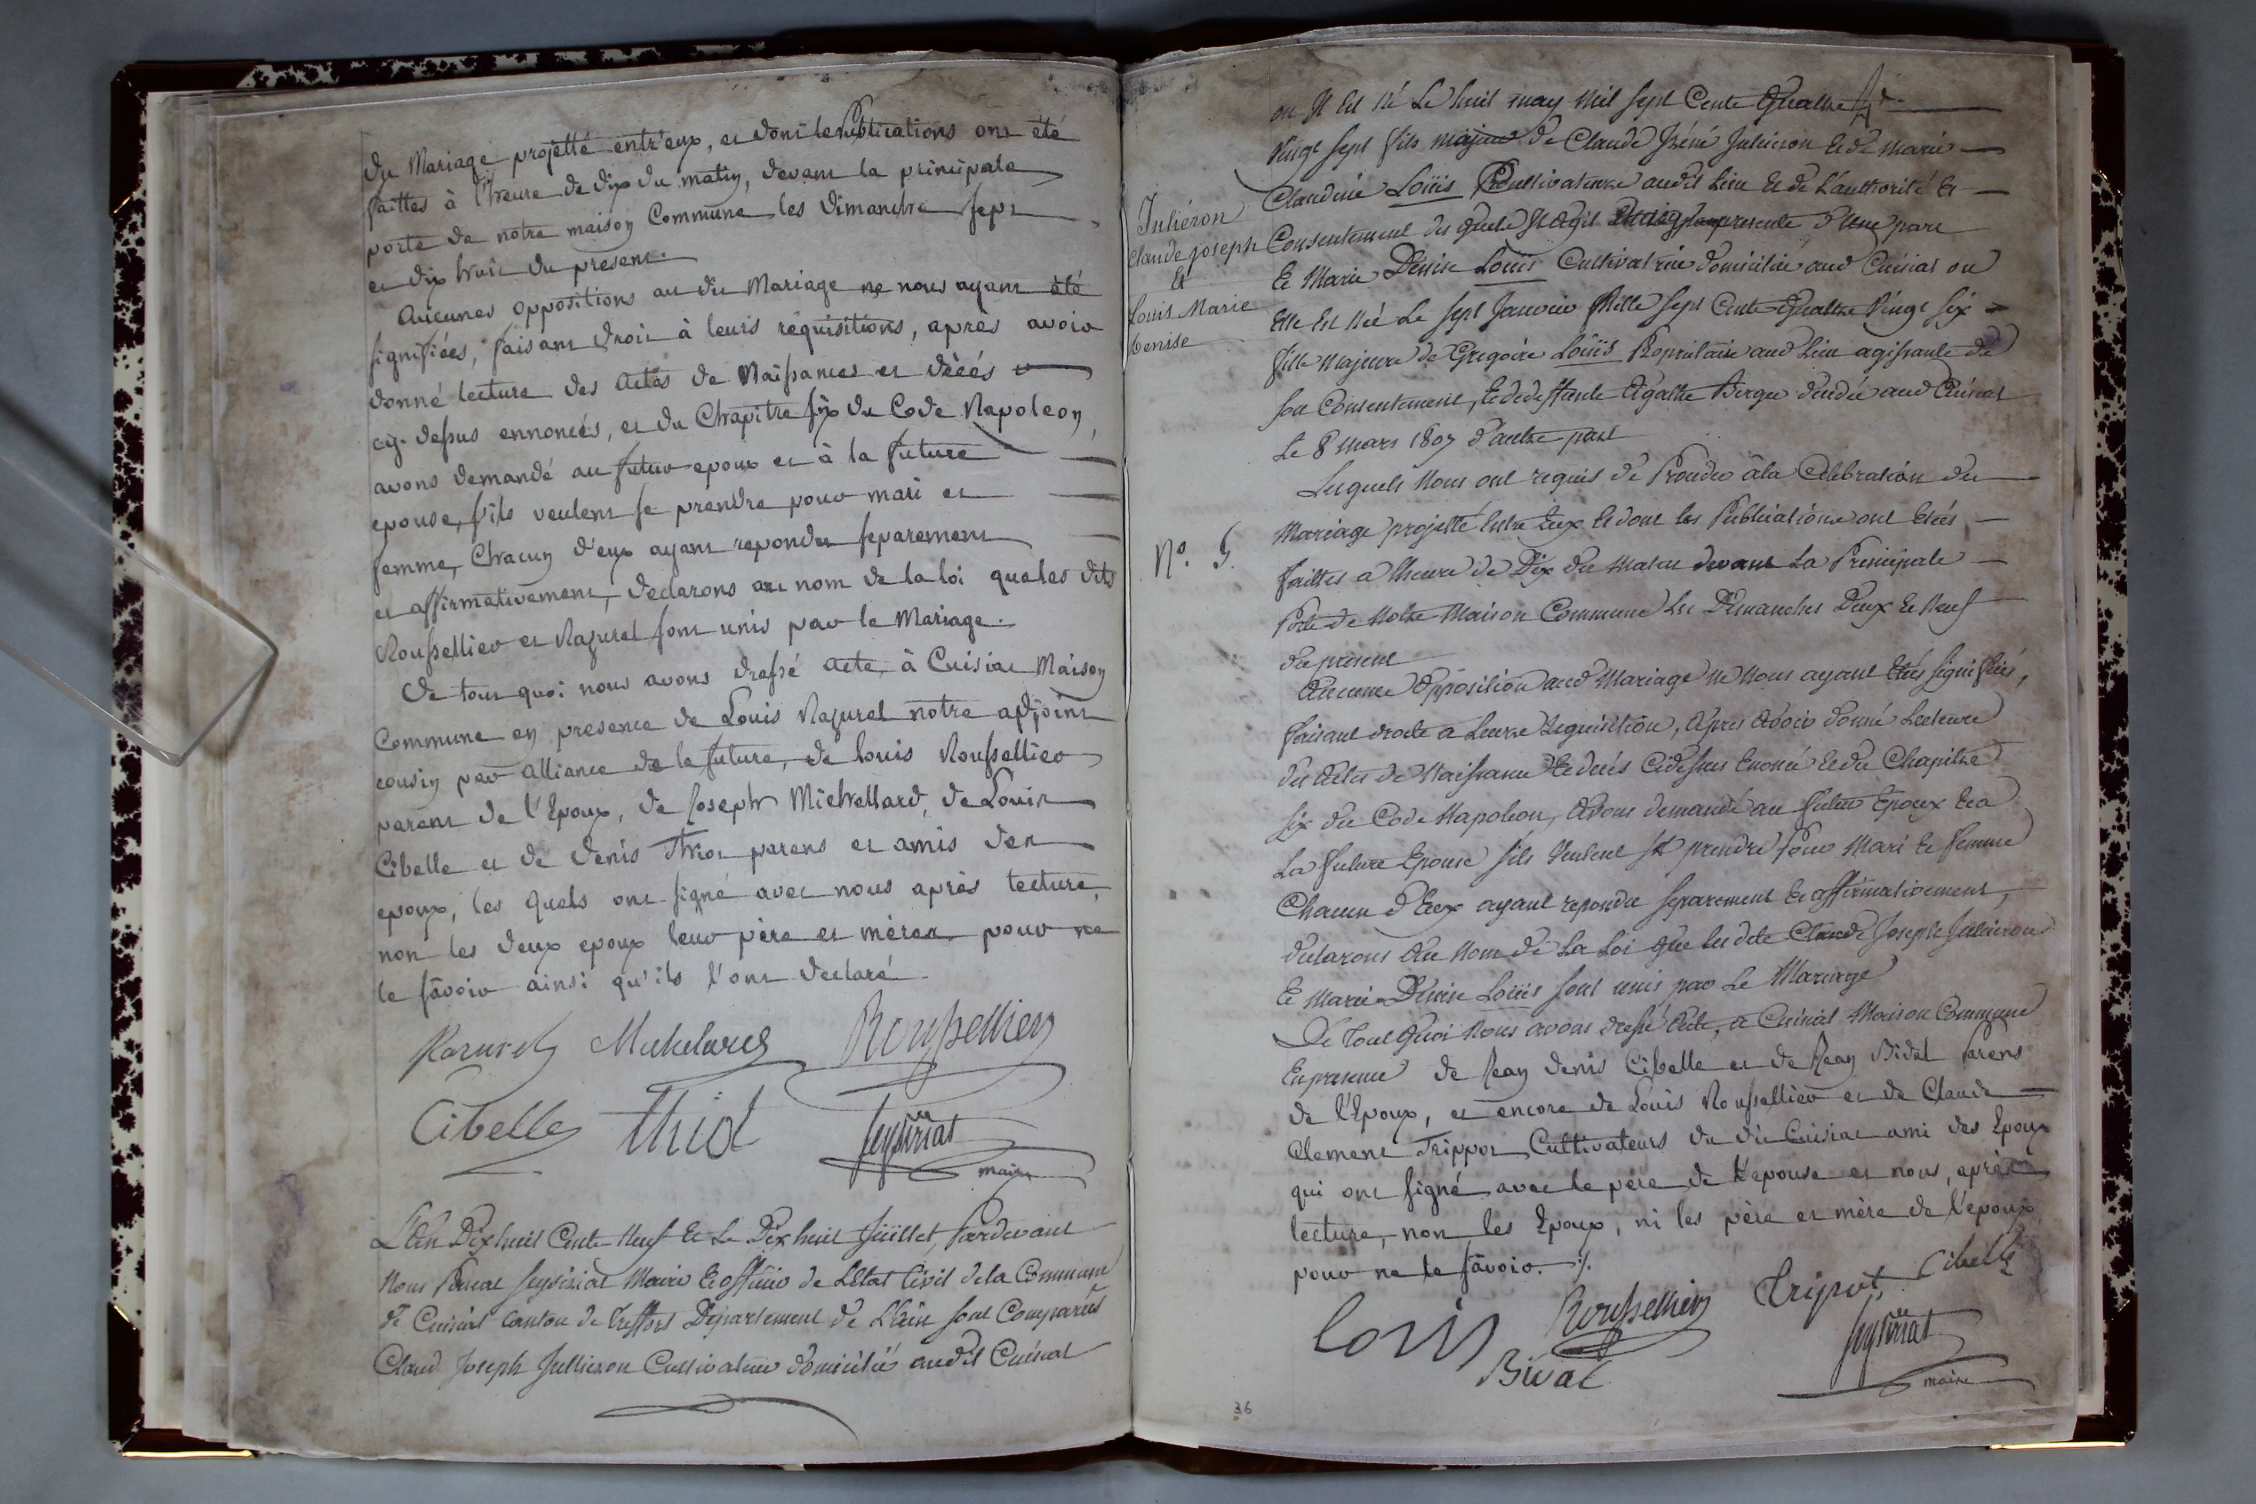 du Mariage projetté entr'eux, et dont les Publications ont été
faittes à l'heure de dix du matin, devant la principale
porte de notre maison Commune les dimanche sept
et dix huit du present.
Aucunes oppositions au dit Mariage ne nous ayant été
signifiées, faisant droit à leurs réquisitions, après avoir
donné lecture des actes de Naissances et décés
cy-dessus ennoncés, et du Chapitre six du Code Napoleon,
avons demandé au futur epoux et à la future
epouse, s'ils veulent se prendre pour mari et
femme, Chacun d'eux ayant repondu separement
et affirmativement, declarons au nom de la loi que les dits
Roussellier et Nazurel sont unis par le Mariage.
De tout quoi nous avons drassé acte, à Cuisiat Maison
Commune en presence de Louis Nazurel notre adjoint
cousin par alliance de la future, de Louis Roussellier
parent de l'Epoux, de Joseph Michellard, de Louis
Cibelle et de Denis Thiot parens et amis des
epoux, les quels ont signé avec nous après lecture,
non les deux epoux leur père et mères pour ne
le sçavoir ainsi qu'ils l'ont declaré.
Nazurel Michelard Roussellier
Cibelle Thiot Seysiriat
maire
L'An Dix huit Cents Neuf Et Le Dix huit Juillet, Pardevant
Nous Seysiriat Maire Et officier de L'Etat Civil de la Commune
de Cuisiat canton de Treffort Département de L'Ain sont Comparus
Claud Joseph Jullieron Cultivateur domicilié audit Cuisiat
Juliéron
Claude joseph
et
Louis Marie
Denise
N.º 5.
ou Il Est Né Le huit may Mil sept Cents Quatre
Vingt sept fils majeur de Claude Juliéron Et de Marie
Claudine Loüis Cultivateurs audit Lieu Et de L'authorité Et
Consentement des quels Il Agit presents d'Une part
Et Marie Denise Louis Cultivatrice domiciliée aud Cuisiat ou
Elle Est Née Le sept Janvier Mille sept Cents Quattre Vingt six
fille Majeure de Gregoire Loüis Propriétaire aud Lieu agissante de
son Consentement, Et de deffunte Agathe Berger décédée aud Cuisiat
Le 8 mars 1807 d'autre part
Lesquels Nous ont requis de Proceder à la Célébration du
Mariage projetté Entre Eux Et dont les Publications ont Etées
faittes a lheure de Dix du Matin devant La Principale
Porte de Notre Maison Commune les Dimanches Deux Et Neuf
du present
Aucune Opposition aud Mariage ne Nous ayant Etées signifiées,
faisant droite a Leurre Requisition, Apres Avoir donné Lecteure
des Actes de Naissance Et decés Cidessus Enoncé Et du Chapitre
six du Code Napoleon, Avons demandé au futur Epoux Et a
La future Epouse sils Veulent se prendre Pour Mari Et femme
Chacun d'Eux ayant repondu separement Et affirmativement,
declarons Au Nom de La Loi Que les dits Claude Joseph Julieron
Et Marie Denise Loüis sont unis par Le Mariage
De Tout Quoi Nous avons dressé Acte, a Cuisiat Maison Commune
En presence de Jean Denis Cibelle et de Jean Bidal parens
de l'Epoux, et encore de Louis Roussellier et de Claude
Clement Trippot Cultivateurs du dit Cuisiat ami des Epoux
qui ont signé avec le père de l'epouse et nous, après
lecture, non les Epoux, ni les père et mère de l'epoux
pour ne le sçavoir.
Louis Roussellier Tripot Cibelle
Seysiriat
maire
36